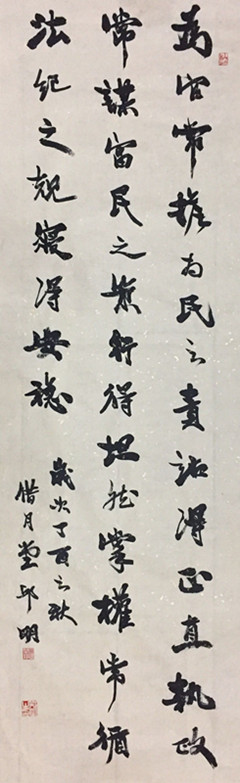 為官常推為民之責站得正直執政
常謀富民之業行得坦然掌權常循
法紀之規寢得安穩
歲次丁酉之秋
惜月堂邱明